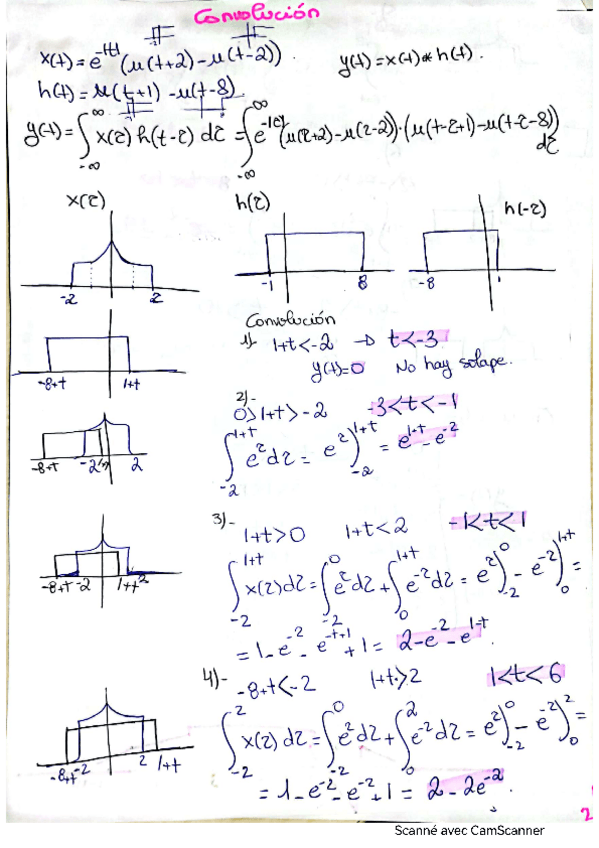 Convolución
x(t)=e^-|t| (u(t+2)-u(t-2))
y(t)=x(t)*h(t).
h(t)=u(t+1)-u(t-8)
y(t)=∫_-∞^∞ x(τ)h(t-τ)dτ=∫_-∞^∞ e^-|τ| (u(τ+2)-u(τ-2))·(u(t-τ+1)-u(t-τ-8)) dτ
x(τ) h(τ) h(-τ)
-2 2 -1 8 -8 1
Convolución
1)- 1+t<-2 → t<-3
y(t)=0 No hay solape.
-8+t 1+t
2)-
0>1+t>-2 -3<t<-1
∫_-2^1+t e^τ dτ = e^τ)_-2^1+t = e^1+t - e^-2
-8+t -2 2
3)- 1+t>0 1+t<2 -1<t<1
∫_-2^1+t x(τ)dτ=∫_-2^0 e^τ dτ+∫_0^1+t e^-τ dτ = e^τ)_-2^0 - e^-τ)_0^1+t =
-8+t -2 1+t 2
=1-e^-2-e^-t+1+1= 2-e^-2-e^1-t
4)- -8+t<-2 1+t>2 1<t<6
∫_-2^2 x(τ)dτ=∫_-2^0 e^τ dτ+∫_0^2 e^-τ dτ = e^τ)_-2^0 - e^-τ)_0^2 =
-8+t -2 2 1+t
= 1-e^-2-e^-2+1 = 2-2e^-2.
2
Scanné avec CamScanner